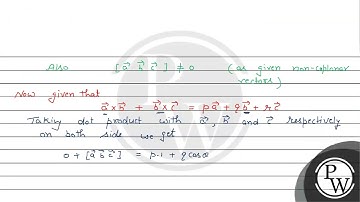 Also [a⃗ b⃗ c⃗] ≠ 0 (as given non-coplanar
vectors)
Now given that
a⃗×b⃗ + b⃗×c⃗ = pa⃗ + qb⃗ + rc⃗
Taking dot product with a⃗, b⃗ and c⃗ respectively
on both side we get
0 + [a⃗ b⃗ c⃗] = p.1 + q cosθ
PW